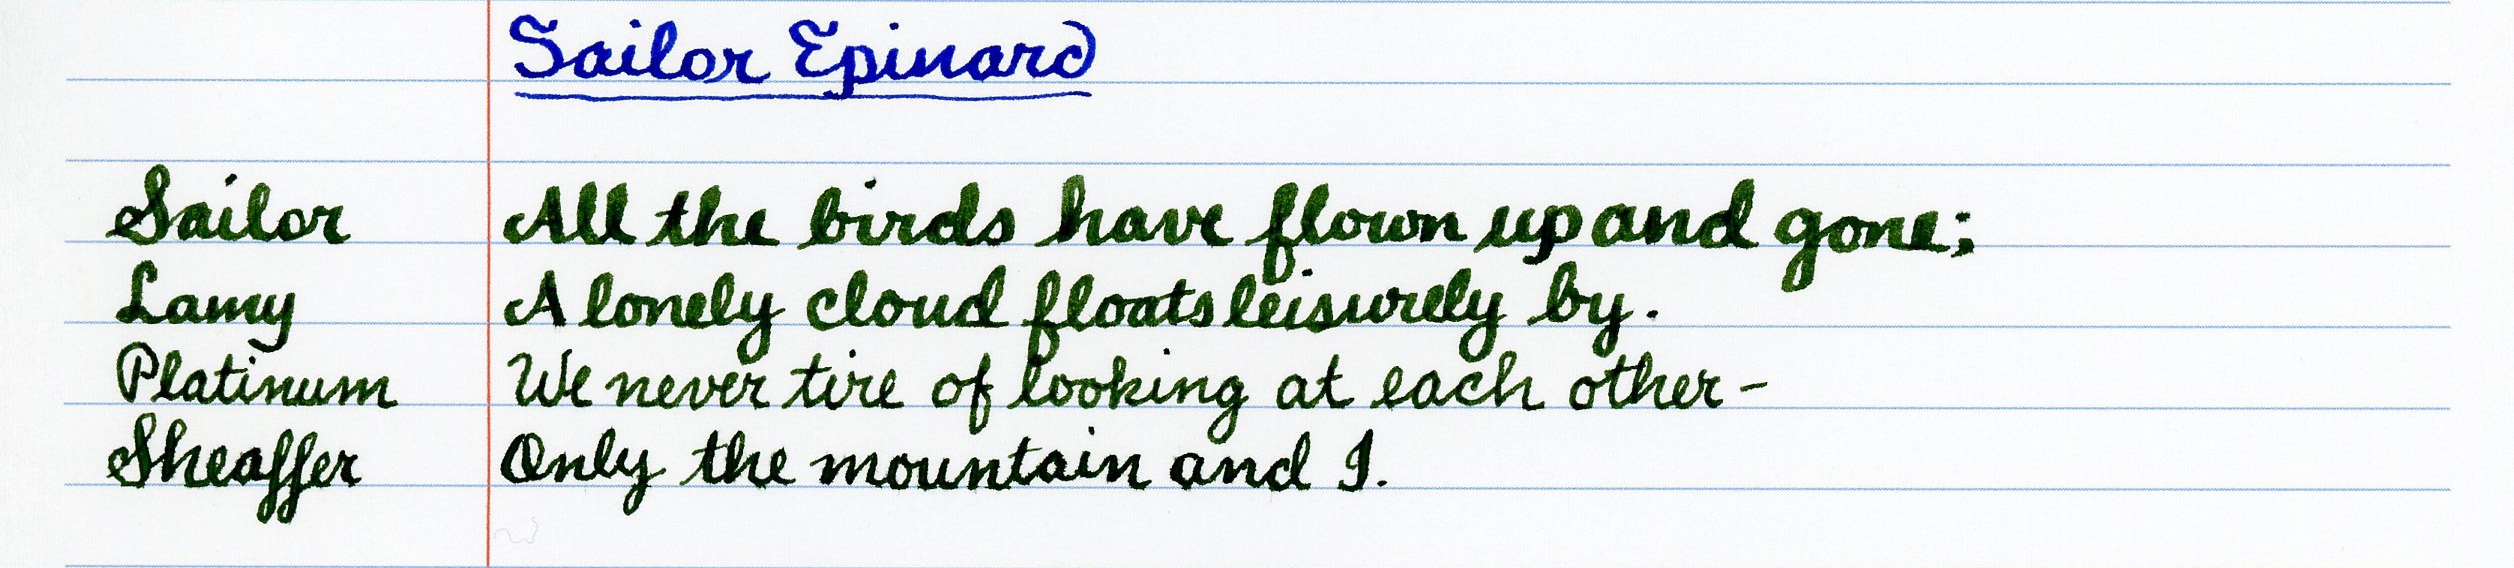 Sailor Epinard
Sailor All the birds have flown up and gone;
Lamy A lonely cloud floats leisurely by.
Platinum We never tire of looking at each other-
Sheaffer Only the mountain and I.